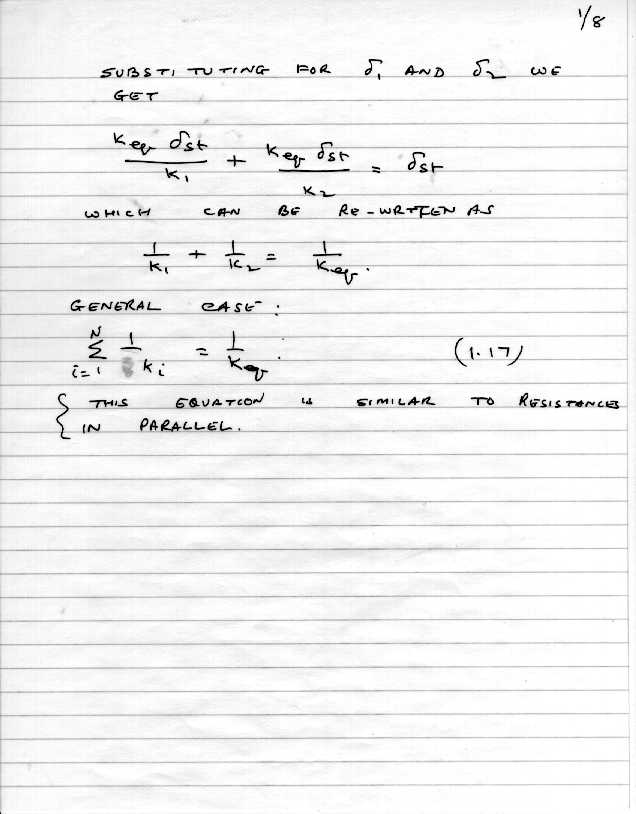 1/8
SUBSTITUTING FOR δ₁ AND δ₂ WE
GET
Keq δst / K₁ + Keq δst / K₂ = δst
WHICH CAN BE RE-WRITTEN AS
1/K₁ + 1/K₂ = 1/Keq.
GENERAL CASE :
N Σ i=1 1/ki = 1/Keq. (1.17)
{ THIS EQUATION IS SIMILAR TO RESISTANCES
IN PARALLEL.